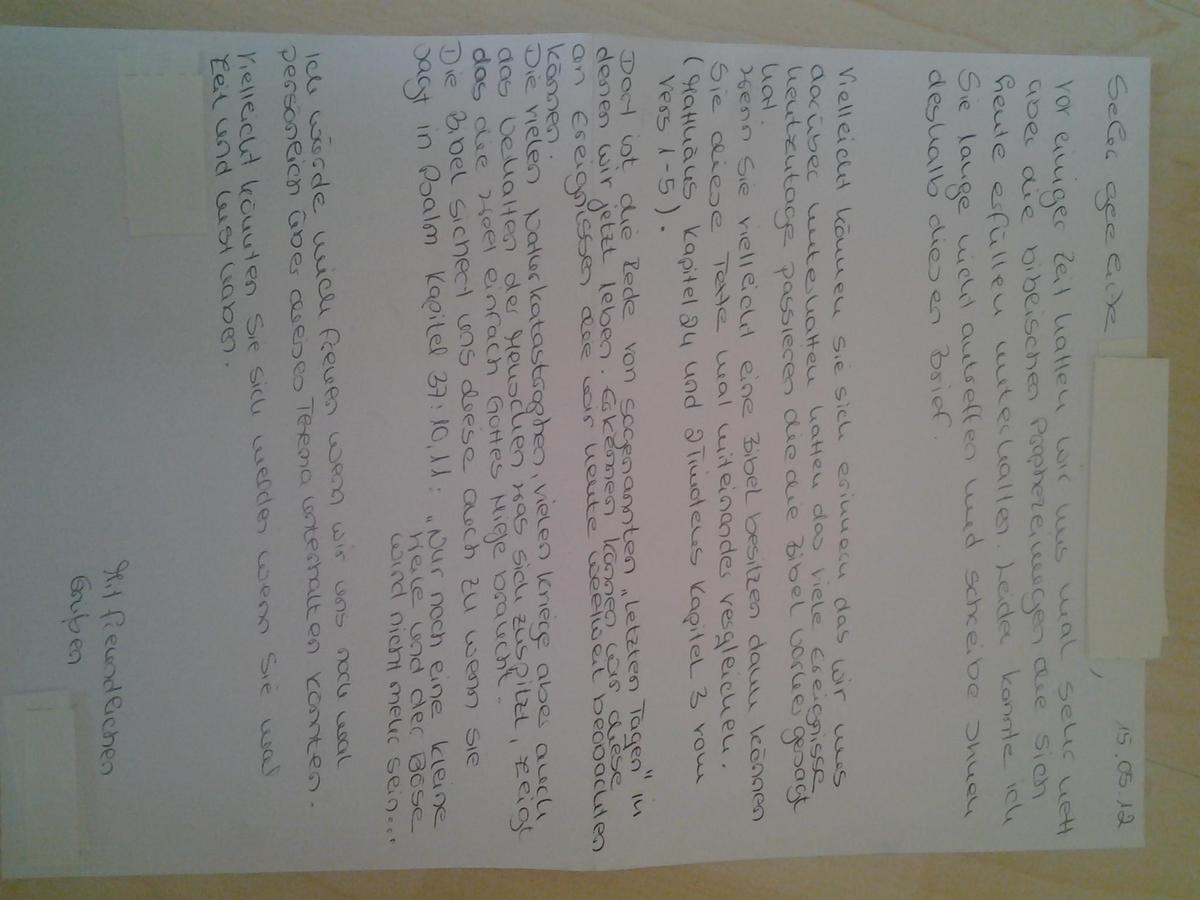 15.05.12
Sehr geehrte ,
vor einiger Zeit hatten wir uns mal sehr nett
über die biblischen Prophezeiungen die sich
heute erfüllen unterhalten. Leider konnte ich
Sie lange nicht antreffen und schreibe Ihnen
deshalb diesen Brief.
Vielleicht können sie sich erinnern das wir uns
darüber unterhalten hatten das viele Ereignisse
heutzutage passieren die die Bibel vorhergesagt
hat.
Wenn Sie vielleicht eine Bibel besitzen dann können
Sie diese Texte mal miteinander vergleichen.
(Matthäus Kapitel 24 und 2 Timoteus Kapitel 3 vom
Vers 1-5).
Dort ist die Rede von sogenannten „letzten Tagen" in
denen wir jetzt leben. Erkennen können wir diese
an Ereignissen die wir heute weltweit beobachten
können.
Die vielen Naturkatastrophen, vielen Kriege aber auch
das Verhalten der Menschen was sich zuspitzt, zeigt
das die Welt einfach Gottes Hilfe braucht.
Die Bibel sichert uns diese auch zu wenn sie
sagt in Psalm Kapitel 37:10,11: „Nur noch eine kleine
Weile und der Böse
wird nicht mehr sein...
Ich würde mich freuen wenn wir uns noch mal
persönlich über dieses Tema unterhalten könnten.
Vielleicht könnten Sie sich melden wenn Sie mal
Zeit und Lust haben.
Mit freundlichen
Grüßen